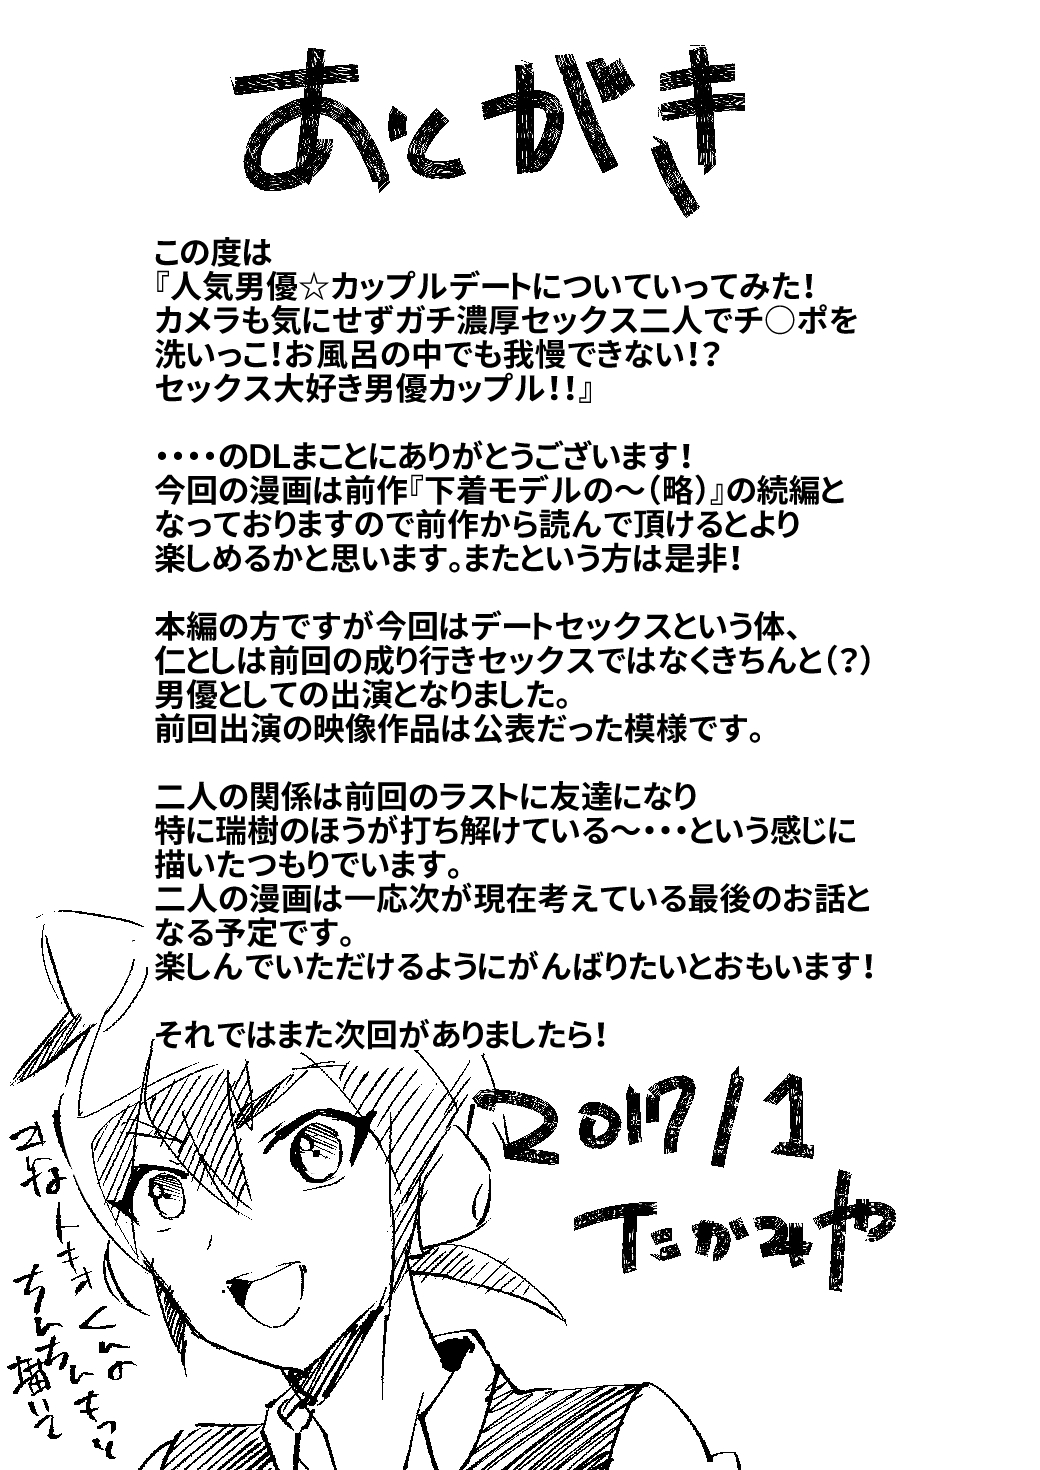 あとがき
この度は
『人気男優☆カップルデートについていってみた！
カメラも気にせずガチ濃厚セックス二人でチ〇ポを
洗いっこ！お風呂の中でも我慢できない！？
セックス大好き男優カップル！！』
・・・・のDLまことにありがとうございます！
今回の漫画は前作『下着モデルの～（略）』の続編と
なっておりますので前作から読んで頂けるとより
楽しめるかと思います。またという方は是非！
本編の方ですが今回はデートセックスという体、
仁としは前回の成り行きセックスではなくきちんと（？）
男優としての出演となりました。
前回出演の映像作品は公表だった模様です。
二人の関係は前回のラストに友達になり
特に瑞樹のほうが打ち解けている～・・・という感じに
描いたつもりでいます。
二人の漫画は一応次が現在考えている最後のお話と
なる予定です。
楽しんでいただけるようにがんばりたいとおもいます！
それではまた次回がありましたら！
2017/1
たかみや
トキオくんの
ちんちんもっと
描いて